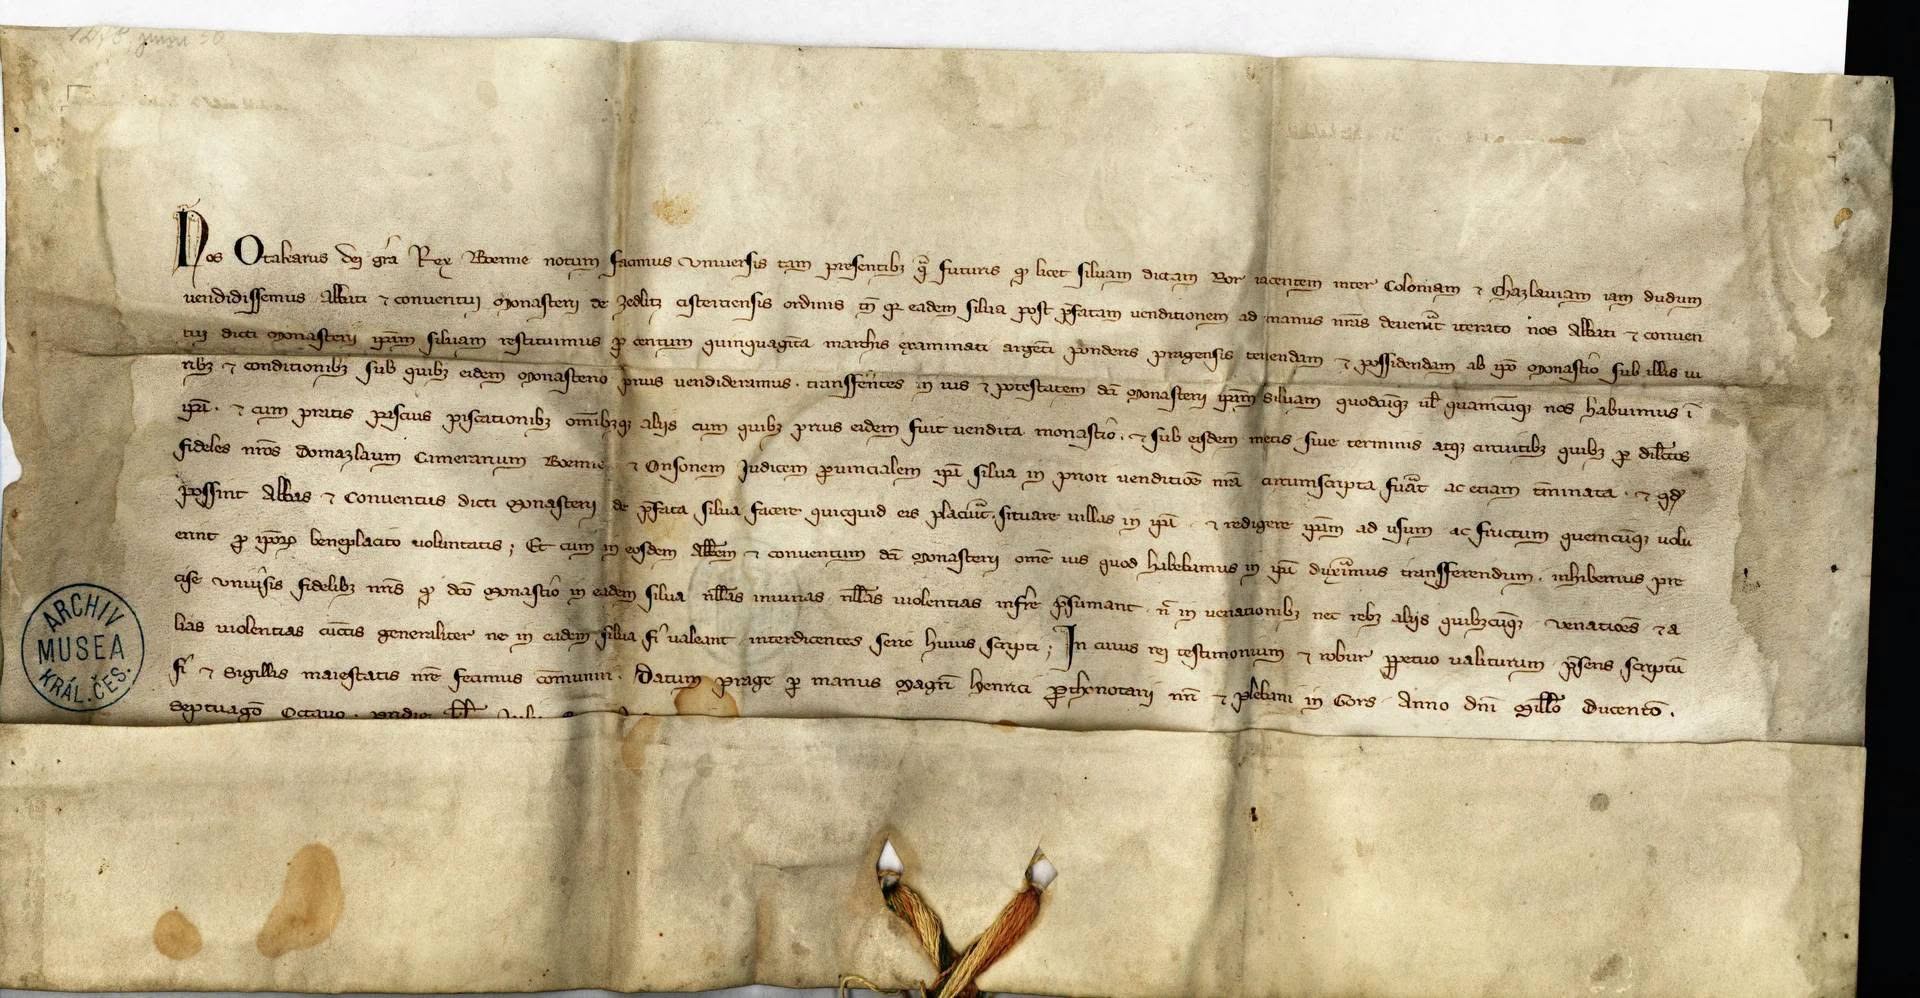 1278, junii 30
Nos Otakarus dei gr̄a Rex Boemie notum facimus Vniuersis tam presentibꝫ q̄ᵃ futuris ꝙ licet siluam dictam Bor iacentem inter Coloniam ⁊ Chazlauiam iam dudum
vendidissemus Abbati ⁊ conuentuj Monasterij de Zedlitz cisterciensis ordinis tn̄ qr eadem silua post p̄fatam venditionem ad manus nr̄as deuen̄it iterato nos Abbati ⁊ conuen
tuj dicti Monasterij ip̄am siluam restituimus ꝓ centum quinquagīta marchis examinati argēti ponderis pragensis tenendam ⁊ possidendam ab ip̄o Monast̄io sub illis iu
ribꝫ ⁊ conditionibꝫ sub quibꝫ eidem Monasterio prius vendideramus. transfferētes in ius ⁊ potestatem dc̄i Monasterij ip̄am siluam quodcūqꝫ ul̄ quamcūqꝫ nos habuimus ī
ip̄a. ⁊ cum pratis pascuis piscationibꝫ om̄ibꝫqꝫ alijs cum quibꝫ prius eidem fuit vendita monast̄io. ⁊ sub eisdem metis siue terminis atqꝫ circuitibꝫ quibꝫ ꝑ dil̄c̄os
fideles nr̄os Domazlaum Camerarium Boemie ⁊ Onsonem Judicem ꝓuincialem ip̄a silua in priori venditiōe nr̄a circumscripta fuāt ac etiam t̄minata. ⁊ qd̄
possint Abbas ⁊ Conuentus dicti Monasterij de p̄fata silua facere quicquid eis placūit. situare uillas in ip̄a ⁊ redigere ip̄am ad vsum ac fructum quemcūqꝫ uolu
erint ꝓ ip̄oꝝ beneplacito voluntatis; Et cum in eosdem Abb̄em ⁊ conuentum dc̄i Monasterij om̄e ius quod habebamus in ip̄a dux̄imus transfferendum. inhibemus pre
cise Vniu̾sis fidelibꝫ nr̄is ꝙ dc̄o Monast̄io in eadem silua nll̄as iniurias nll̄as uiolentias infr̄re p̄sumant n̄ in venationibꝫ nec rebꝫ alijs quibꝫcūqꝫ venatiōes ⁊ a
lias uiolentias cūctis generaliter ne in eadem silua fi̾ valeant interdicentes serie huius scripti; In cuius rei testimonium ⁊ robur ꝑpetuo ualiturum p̄sens scriptū
fi̾ ⁊ Sigillis maiestatis nr̄e fecimus cōmuniri. Datum prage ꝑ manus Magr̄i Henrici ꝓthonotarij nr̄i ⁊ plebani in Gors Anno dn̄i Mill̄o Ducentō.
Septuagō Octauo. pridie kl̄
ARCHIV
MUSEA
KRÁL. ČES.